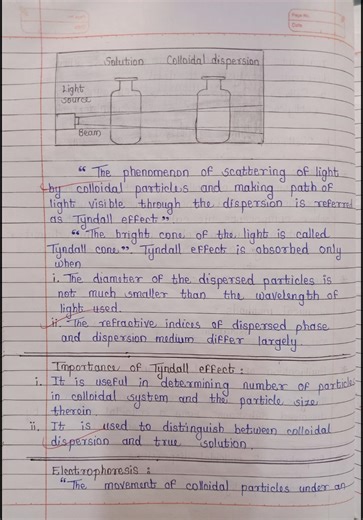 Page No.
Date
Solution Colloidal dispersion
Light
source
Beam
" The phenomenon of scattering of light
by colloidal particles and making path of
light visible through the dispersion is referred
as Tyndall effect ".
" The bright cone of the light is called
Tyndall cone". Tyndall effect is absorbed only
when
i. The diameter of the dispersed particles is
not much smaller than the wavelength of
light used.
ii. The refractive indices of dispersed phase
and dispersion medium differ largely.
Importance of Tyndall effect :
i. It is useful in determining number of particle
in colloidal system and the particle size
therein
ii. It is used to distinguish between colloidal
dispersion and true solution.
Electrophoresis :
"The movement of colloidal particles under an